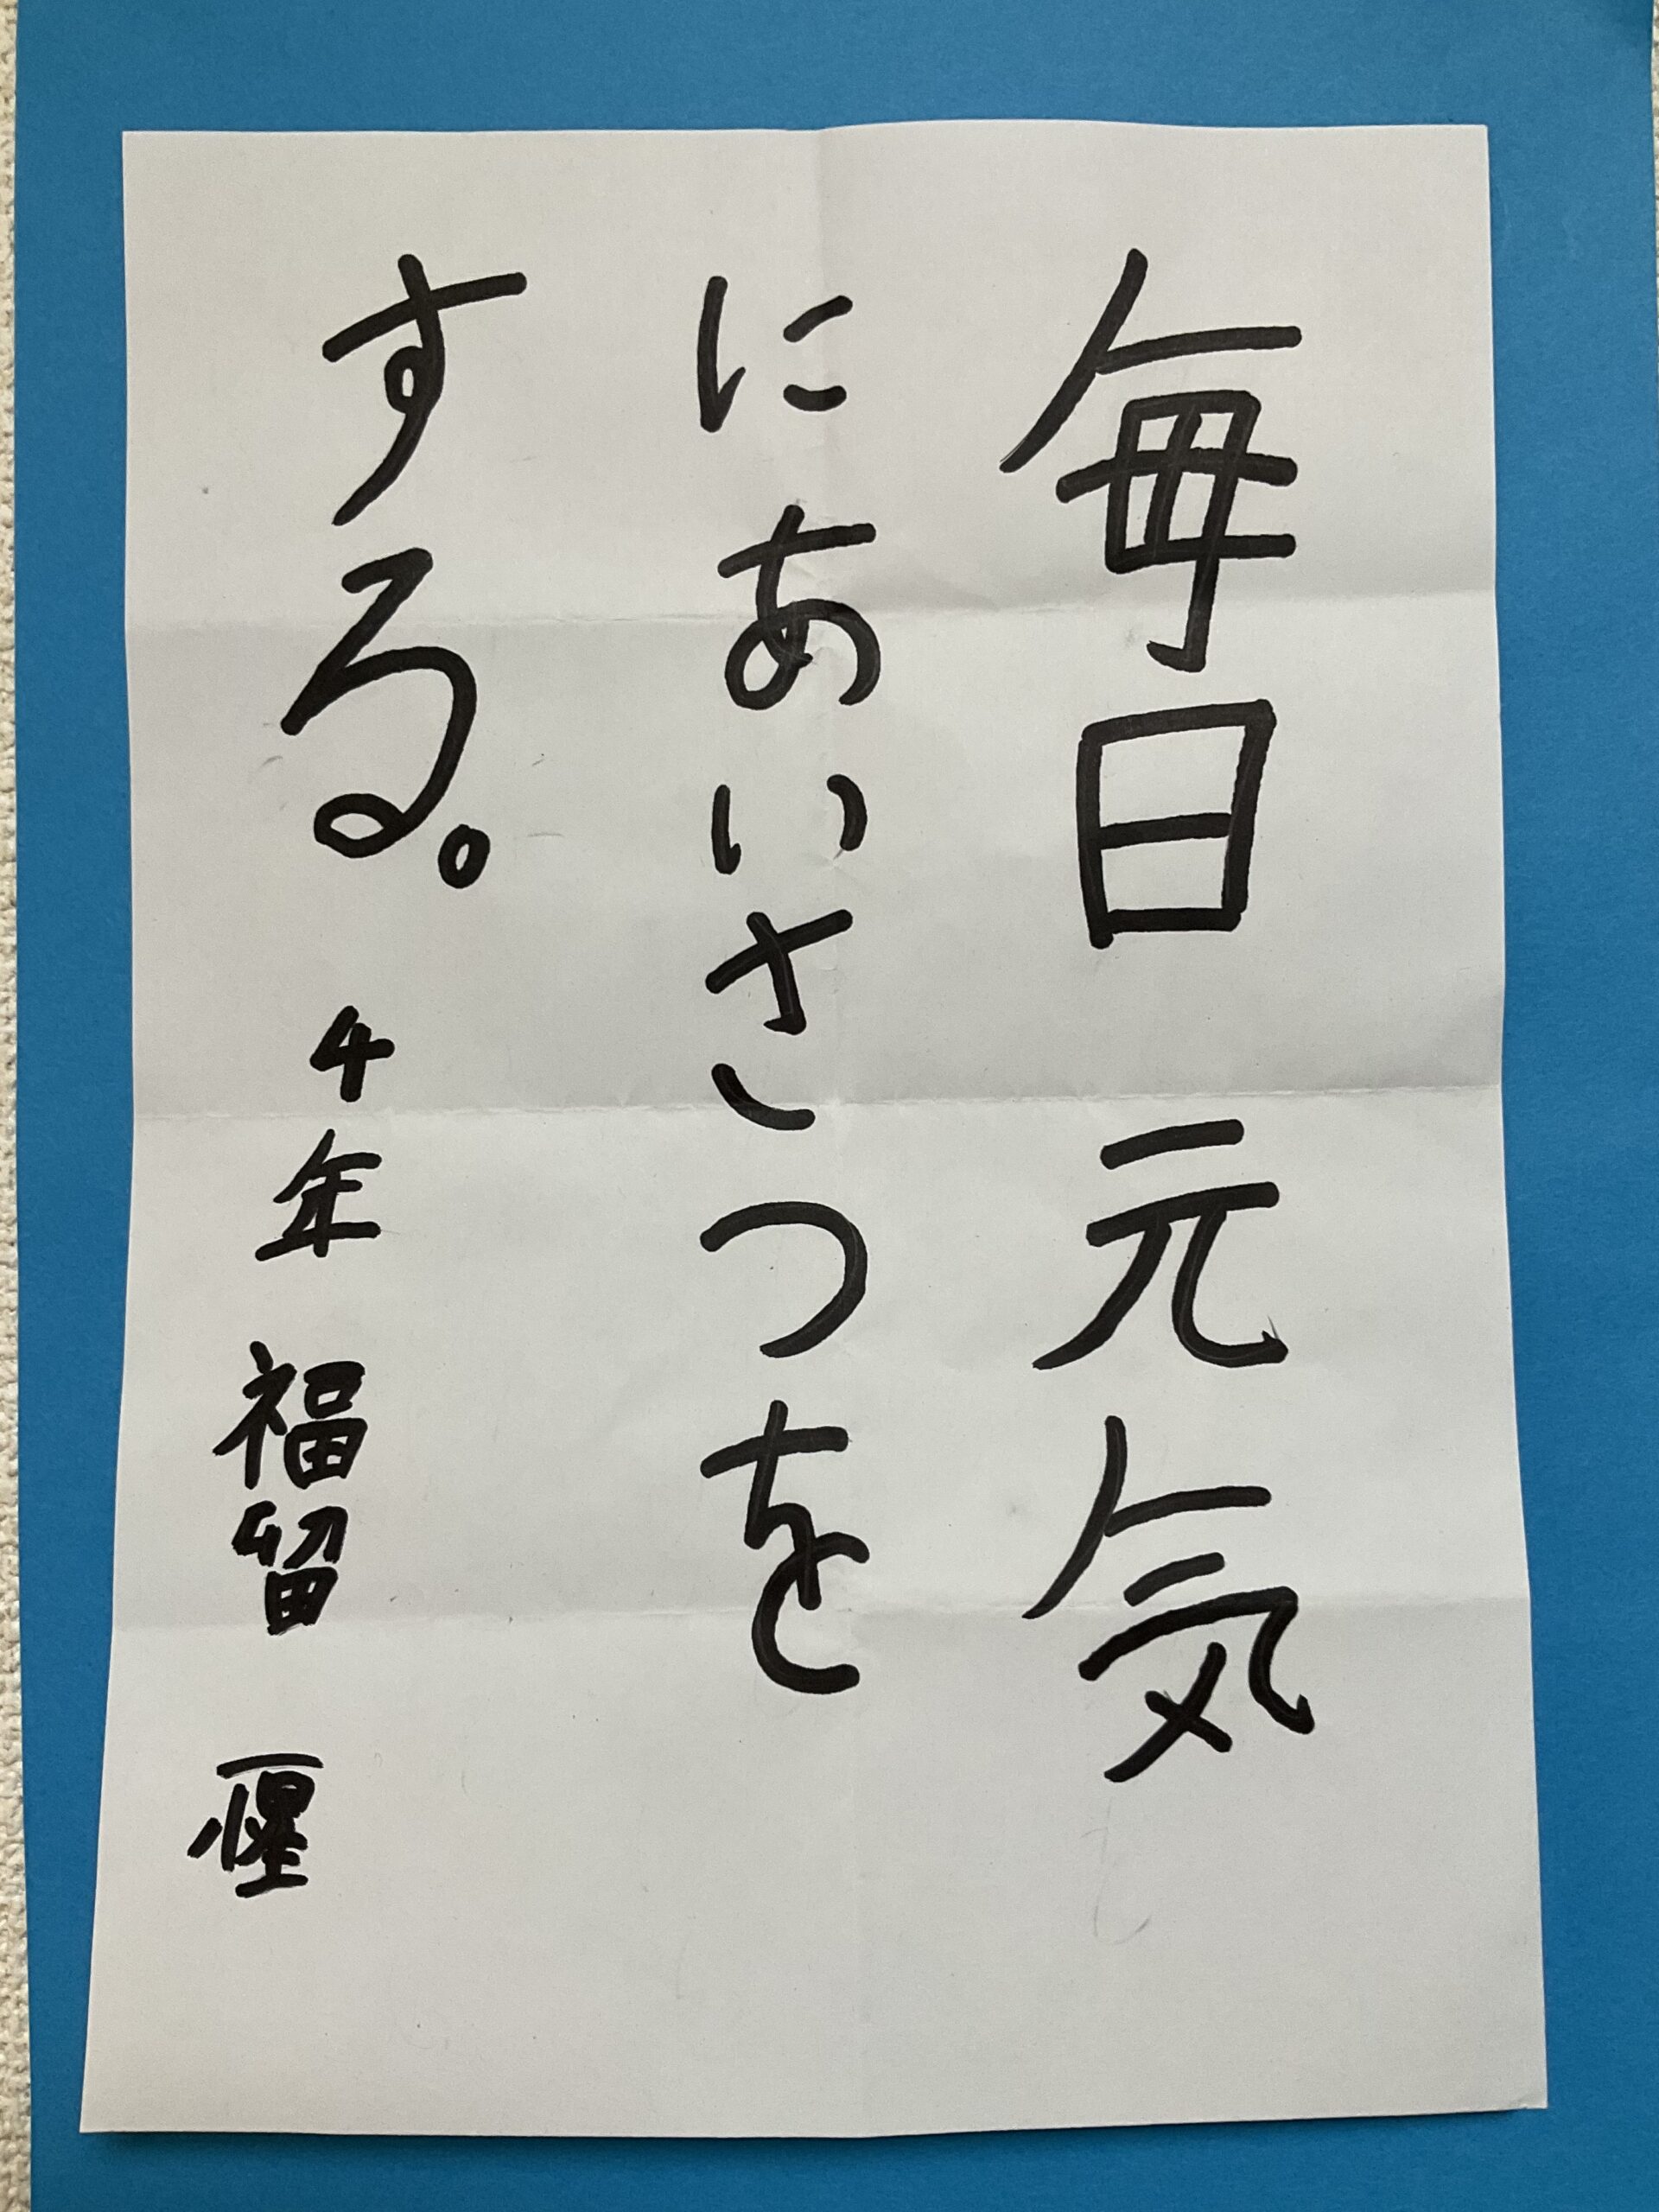 毎日元気
にあいさつを
する。 4年 福留 一惺